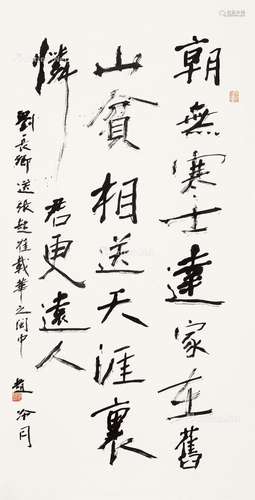 朝無寒士達家在舊
山貧相送天涯裏
憐君更遠人
劉長卿送張起崔載華之閩中
趙冷月